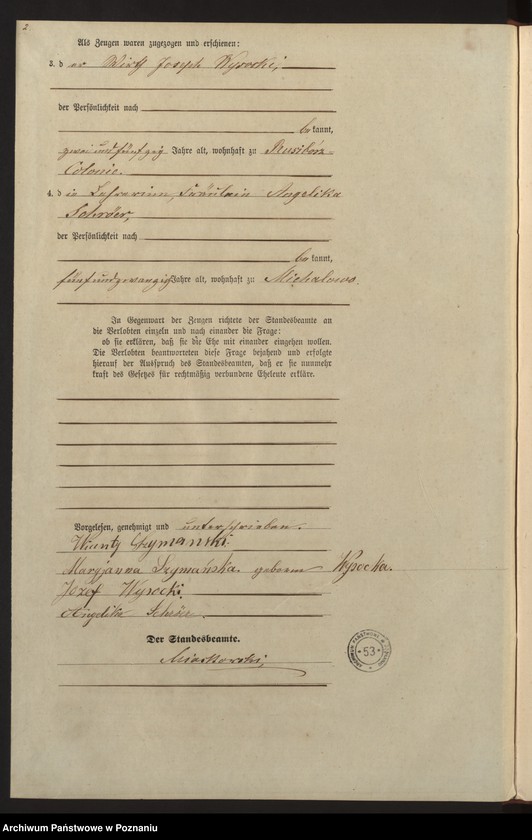 2
Als Zeugen waren zugezogen und erschienen:
3. der Wirth Joseph Wysocki,
der Persönlichkeit nach
bekannt,
zwei und fünfzig Jahre alt, wohnhaft zu
Colonie.
4. die Lehrerin, Fräulein Angelika
Schröer,
der Persönlichkeit nach
bekannt,
fünfundzwanzig Jahre alt, wohnhaft zu Michalowo.
In Gegenwart der Zeugen richtete der Standesbeamte an
die Verlobten einzeln und nach einander die Frage:
ob sie erklären, daß sie die Ehe mit einander eingehen wollen.
Die Verlobten beantworteten diese Frage bejahend und erfolgte
hierauf der Ausspruch des Standesbeamten, daß er sie nunmehr
kraft des Gesetzes für rechtmäßig verbundene Eheleute erkläre.
Vorgelesen, genehmigt und unterschrieben.
Szymanski
Maryjanna Szymańska. geborene Wysocka.
Józef Wysocki.
Angelika Schröer.
Der Standesbeamte.
Miaskowski
ARCHIWUM PAŃSTWOWE W POZNANIU
* 53 *
Archiwum Państwowe w Poznaniu